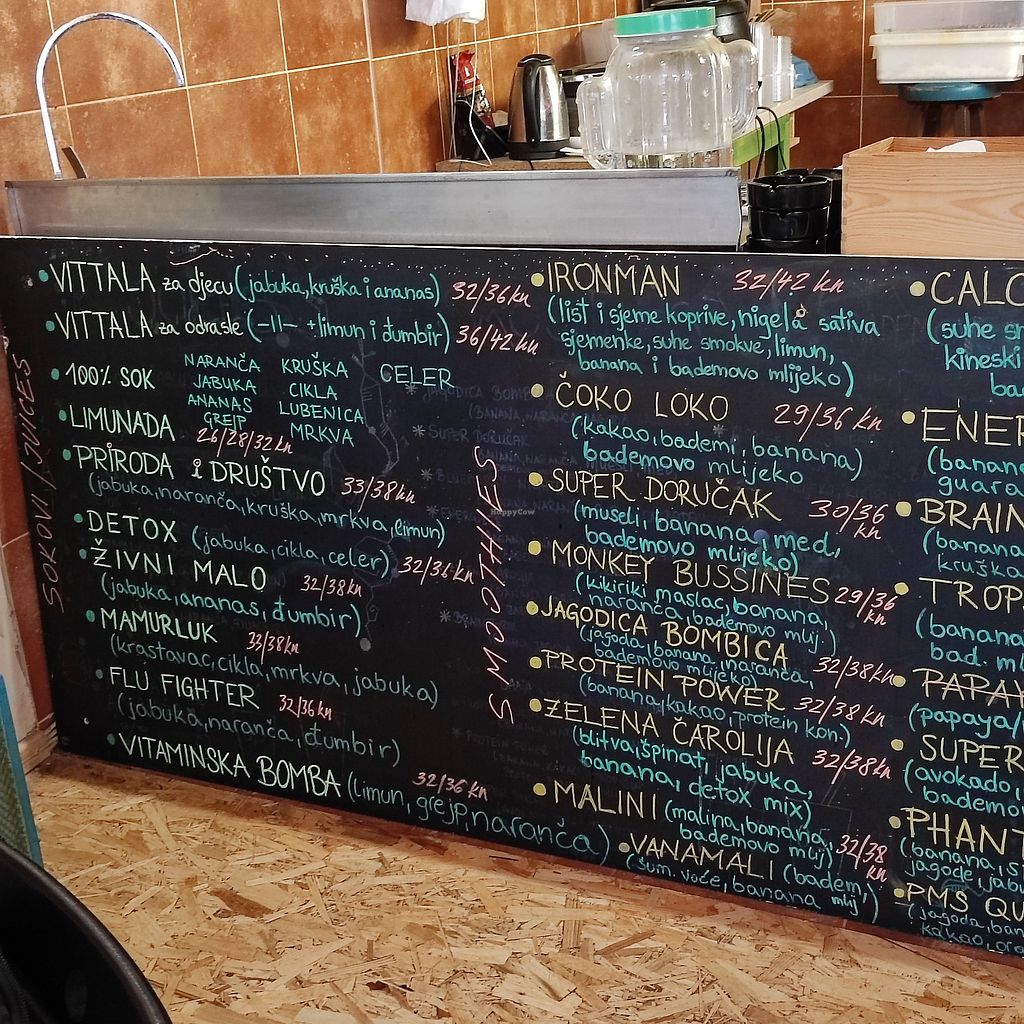 SOKOVI / JUICES
• VITTALA za djecu (jabuka, kruška i ananas) 32/36 kn
• VITTALA za odrasle (-ll- + limun i đumbir) 36/42 kn
• 100% SOK
NARANČA KRUŠKA CELER
JABUKA CIKLA
ANANAS LUBENICA
GREJP MRKVA
• LIMUNADA 26/28/32 kn
• PRIRODA i DRUŠTVO 33/38 kn
(jabuka, naranča, kruška, mrkva, limun)
• DETOX (jabuka, cikla, celer) 32/36 kn
• ŽIVNI MALO 32/38 kn
(jabuka, ananas, đumbir)
• MAMURLUK 33/38 kn
(krastavac, cikla, mrkva, jabuka)
• FLU FIGHTER 32/36 kn
(jabuka, naranča, đumbir)
• VITAMINSKA BOMBA (limun, grejp, naranča) 32/36 kn
SMOOTHIES
• IRONMAN 32/42 kn
(list i sjeme koprive, nigela sativa
sjemenke, suhe smokve, limun,
banana i bademovo mlijeko)
• ČOKO LOKO 29/36 kn
(kakao, bademi, banana)
bademovo mlijeko
• SUPER DORUČAK 30/36 kn
(musli, banana, med,
bademovo mlijeko)
• MONKEY BUSSINES 29/36 kn
(kikiriki maslac, banana,
naranča, bademovo mlij.)
• JAGODICA BOMBICA 32/38 kn
(jagoda, banana, naranča,
bademovo mlijeko)
• PROTEIN POWER 32/38 kn
(banana, kakao, protein kon.)
• ZELENA ČAROLIJA 32/38 kn
(blitva, špinat, jabuka,
banana, detox mix)
• MALINI (malina, banana, 32/38 kn
bademovo mlij)
• VANAMALI (badem,
(šum. voće, banana mlij)
• CALC
(suhe s
kineski
ba
• ENER
(banan
guara
• BRAIN
(banana
kruška
• TROP
(banana
bad. ml
• PAPAY
(papaya/
• SUPER
(avokado,
bademo
• PHANT
(banana, s
jagode, jab
• PMS QU
(jagoda, ban
kakao, or
HappyCow